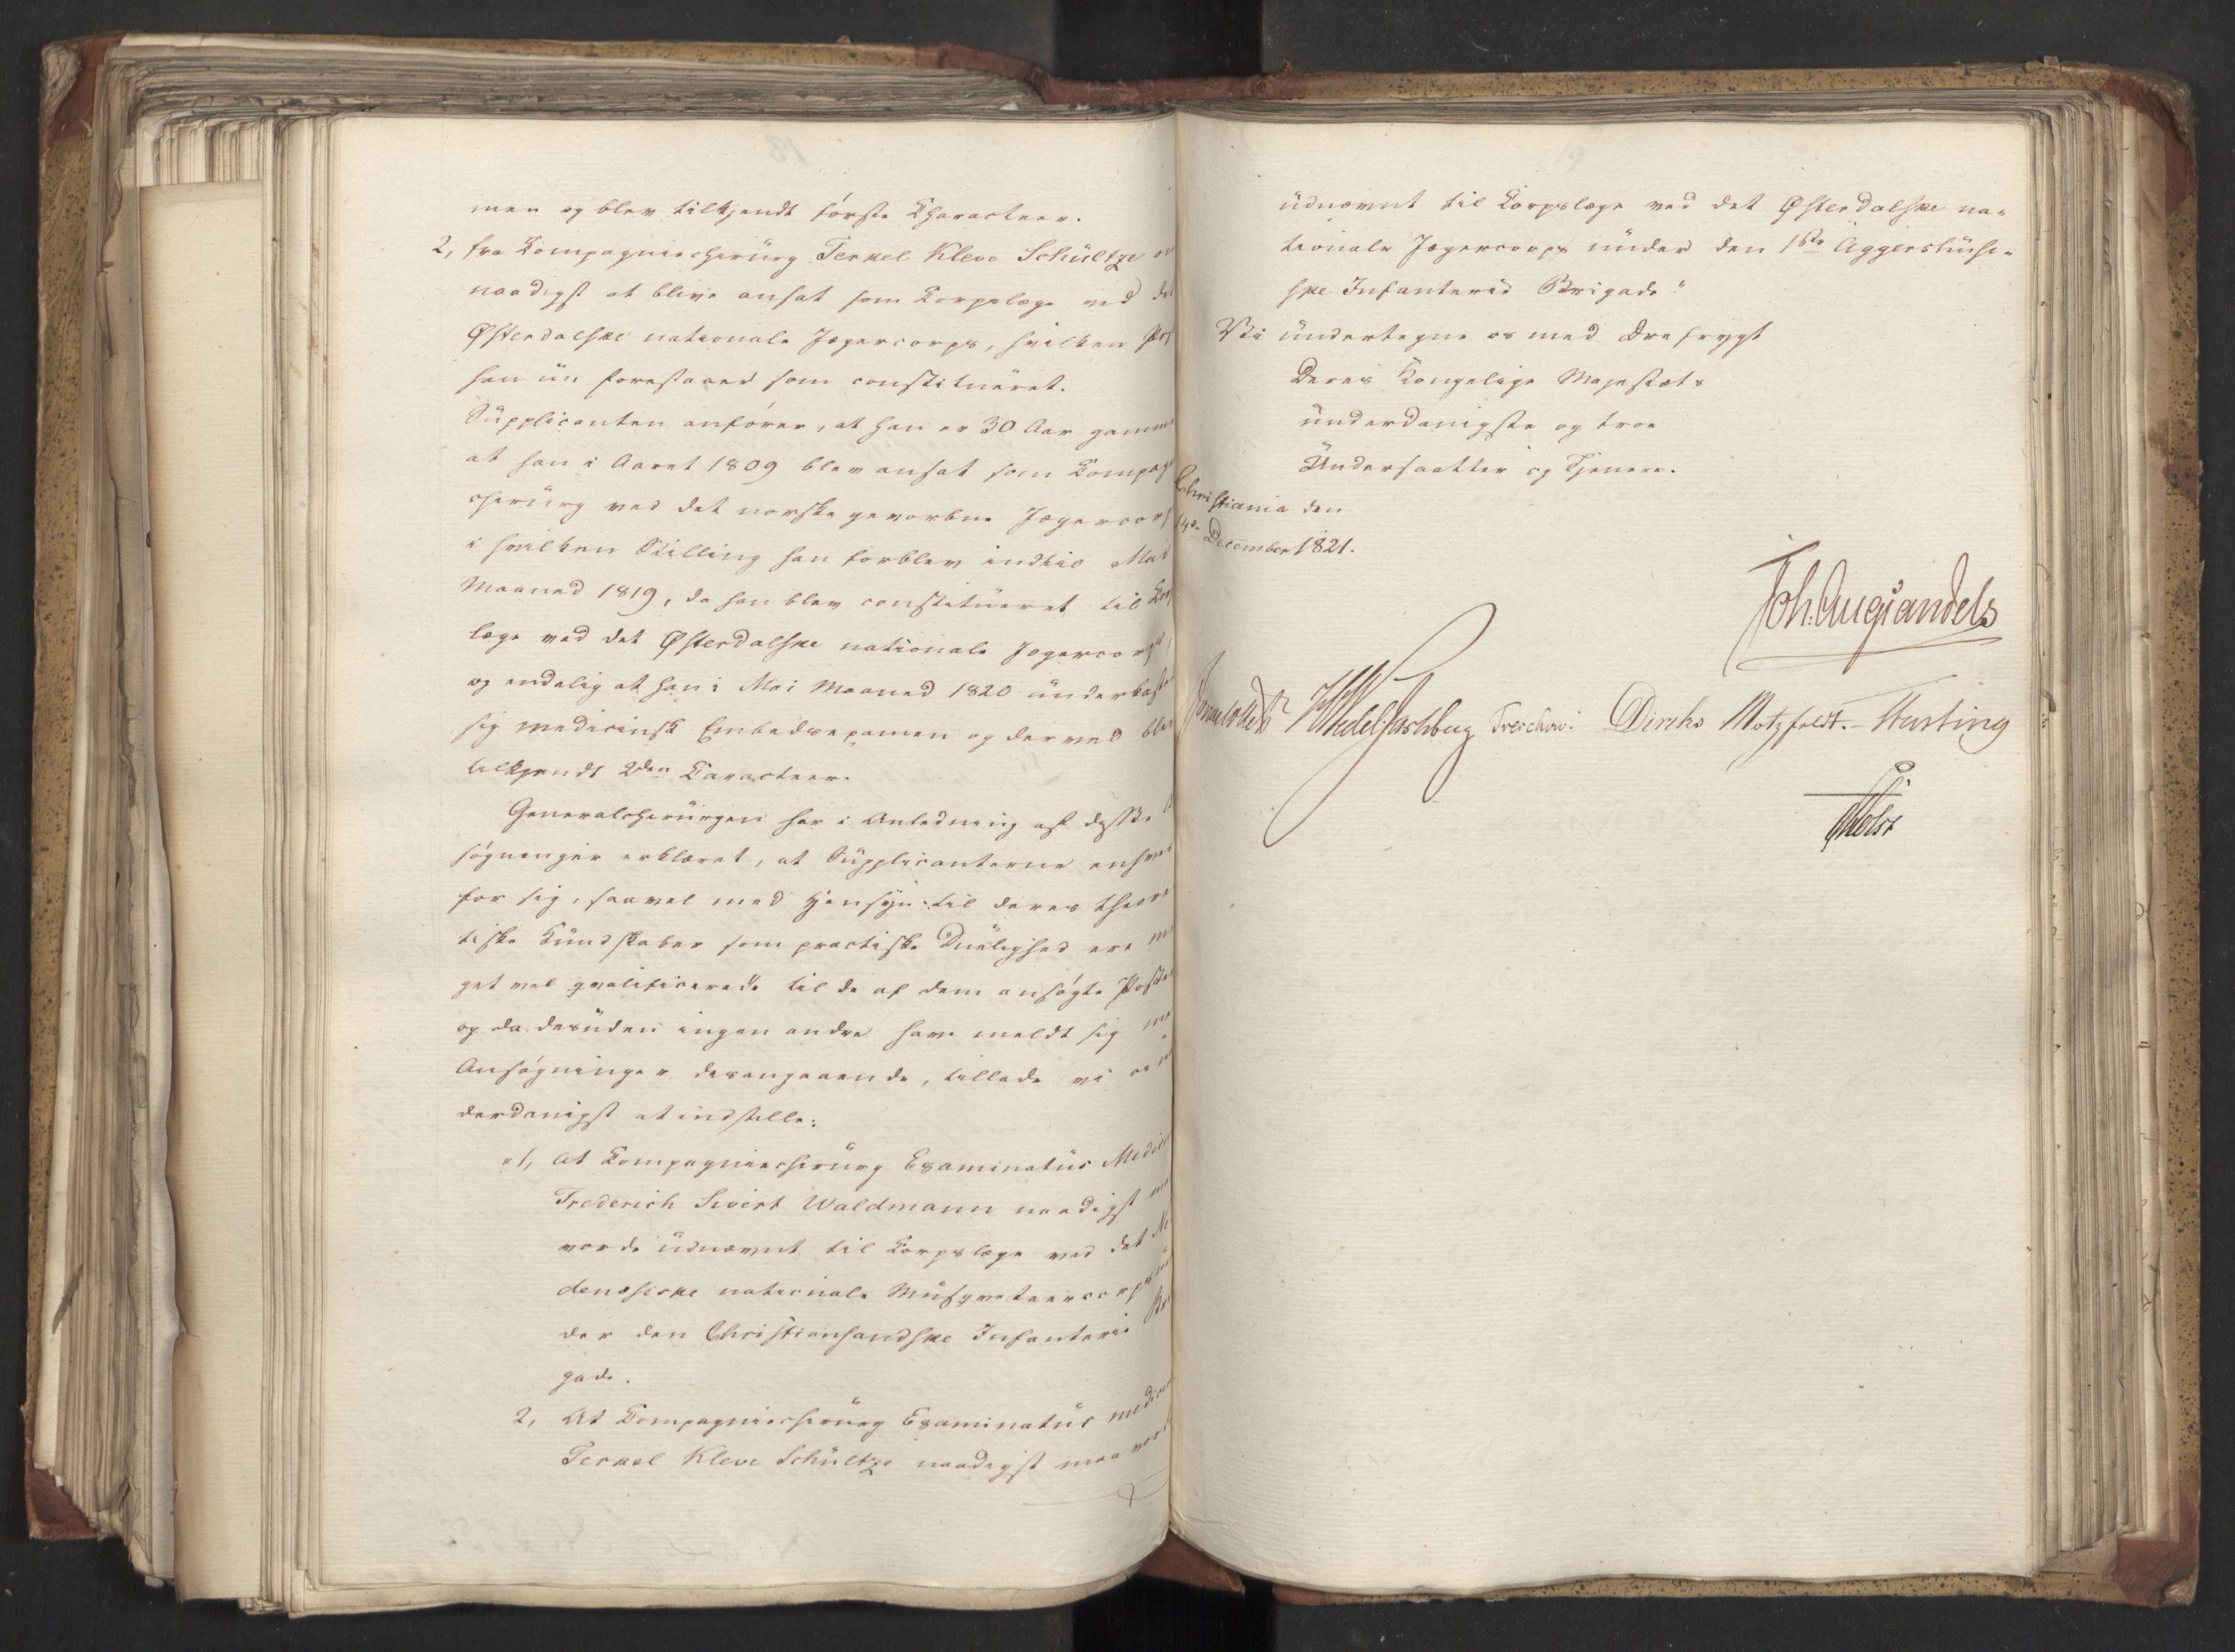 men og blev tilkjendt første Characteer.
2, fra Compagniechirurg Terkel Kleve Schültze om
naadigst at blive ansat som Corpslæge ved det
Østerdalske nationale Jægercorps, hvilken Post
han nu forestaaer som constitueret.
Supplicanten anfører, at han er 30 Aar gammel
at han i Aaret 1809 blev ansat som Compagnie
chirurg ved det norske gevorbne Jægercorps
i hvilken Stilling han forblev indtil Mai
Maaned 1819, da han blev constitueret til Corps
læge ved det Østerdalske nationale Jægercorps,
og endelig at han i Mai Maaned 1820 underkastede
sig medicinsk Embedsexamen og derved blev
tilkjendt 2den Caracteer.
Generalchirurgen har i Anledning af disse An
søgninger erklæret, at Supplicanterne enhver
for sig, saavel med Hensyn til deres theore
tiske Kundskaber som practiske Duelighed ere me
get vel qvalificerede til de af dem ansøgte Poster
og da desuden ingen andre have meldt sig med
Ansøgninger desangaaende, tillade vi os un
derdanigst at indstille:
"1, At Compagniechirurg Examinatus Medici
Frederich Sivert Waldmann naadigst maa
vorde udnævnt til Corpslæge ved det Ne
denæsiske nationale Musqveteercorps un
der den Christiansandske Infanterie Bri
gade.
2, At Compagniechirurg Examinatus medici
Terkel Kleve Schültze naadigst maa vorde
udnævnt til Corpslæge ved det Østerdalske na-
tionale Jægercorps under den 1ste Aggershusi-
ske Infanterie Brigade"
Vi undertegne os med Ærefrygt
Deres Kongelige Majestæts
underdanigste og troe
Undersaatter og Tjenere.
Christiania den
14de December 1821.
Joh: Aug Sandels
Sommerhielm HWedel Jarlsberg Treschow. Diriks Motzfeldt.- Hasting
Holst